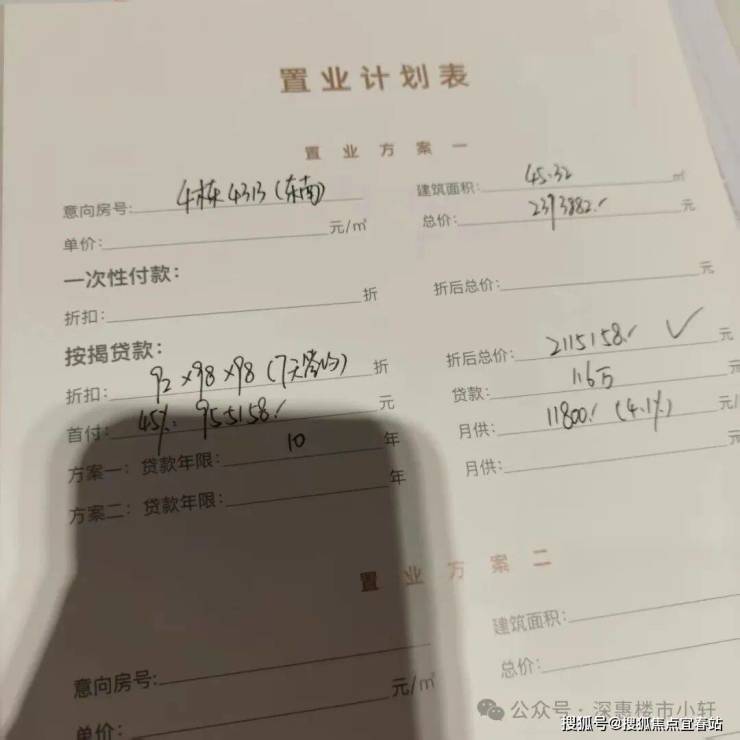 置业计划表
置业方案一
意向房号: 4栋4313(东南) 建筑面积: 45.32 ㎡
单价: 元/㎡ 总价: 2393882.- 元
一次性付款:
折扣: 折 折后总价: 元
按揭贷款:
折扣: 92×98×98(7天签约) 折 折后总价: 2115158.- ✓ 元
首付: 45%: 955158.- 元 贷款: 116万 元
方案一: 贷款年限: 10 年 月供: 11800.-(4.1%) 元/
方案二: 贷款年限: 年 月供: 元
置业方案二
意向房号: 建筑面积:
单价: 元/㎡ 总价:
公众号·深惠楼市小轩
搜狐号@搜狐焦点宜春站